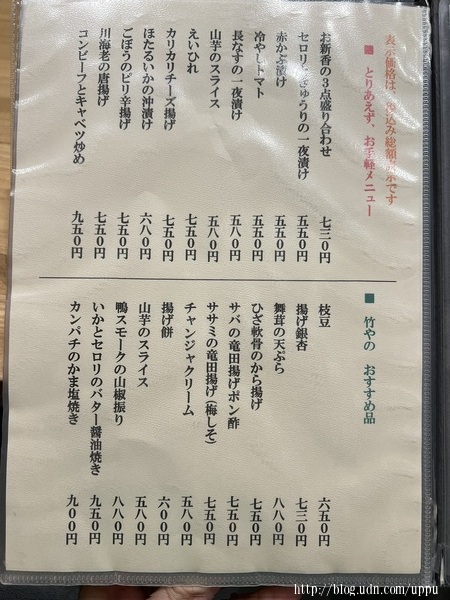 表示価格は、税込み総額表示です
■ とりあえず、お手軽メニュー
お新香の3点盛り合わせ 七三0円
セロリ、きゅうりの一夜漬け 五五0円
赤かぶ漬け 五五0円
冷やしトマト 五五0円
長なすの一夜漬け 五八0円
山芋のスライス 五八0円
えいひれ 七五0円
カリカリチーズ揚げ 七五0円
ほたるいかの沖漬け 六八0円
ごぼうのピリ辛揚げ 七五0円
川海老の唐揚げ 七五0円
コンビーフとキャベツ炒め 九五0円
■ 竹やの おすすめ品
枝豆 六五0円
揚げ銀杏 七三0円
舞茸の天ぷら 八八0円
ひざ軟骨のから揚げ 七五0円
サバの竜田揚げポン酢 七五0円
ササミの竜田揚げ(梅しそ) 七五0円
チャンジャクリーム 五八0円
揚げ餅 六00円
山芋のスライス 五八0円
鴨スモークの山椒振り 八八0円
いかとセロリのバター醤油焼き 九五0円
カンパチのかま塩焼き 九00円
http://blog.udn.com/uppu